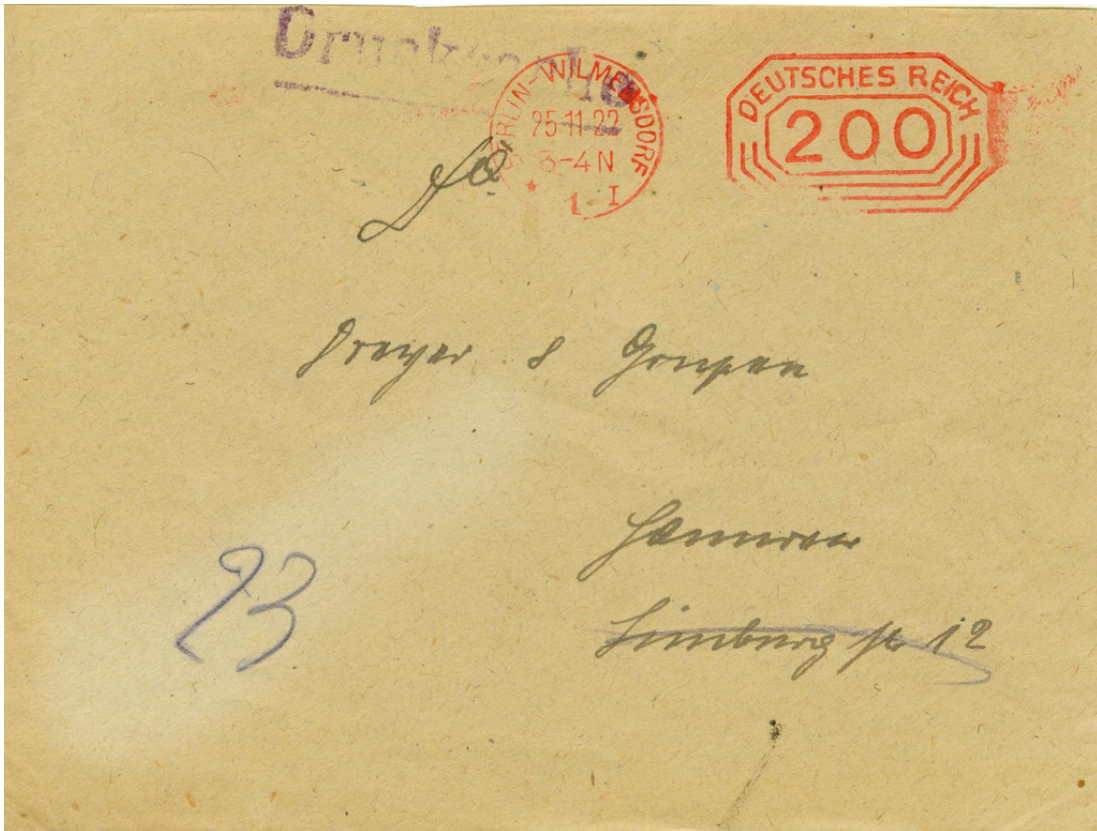 Drucksache
BERLIN-WILMERSDORF
25-11-22
3-4 N
* 1 I
DEUTSCHES REICH
200
Fa
Dreyer & Grupen
Hannover
Limburgstr 12
23